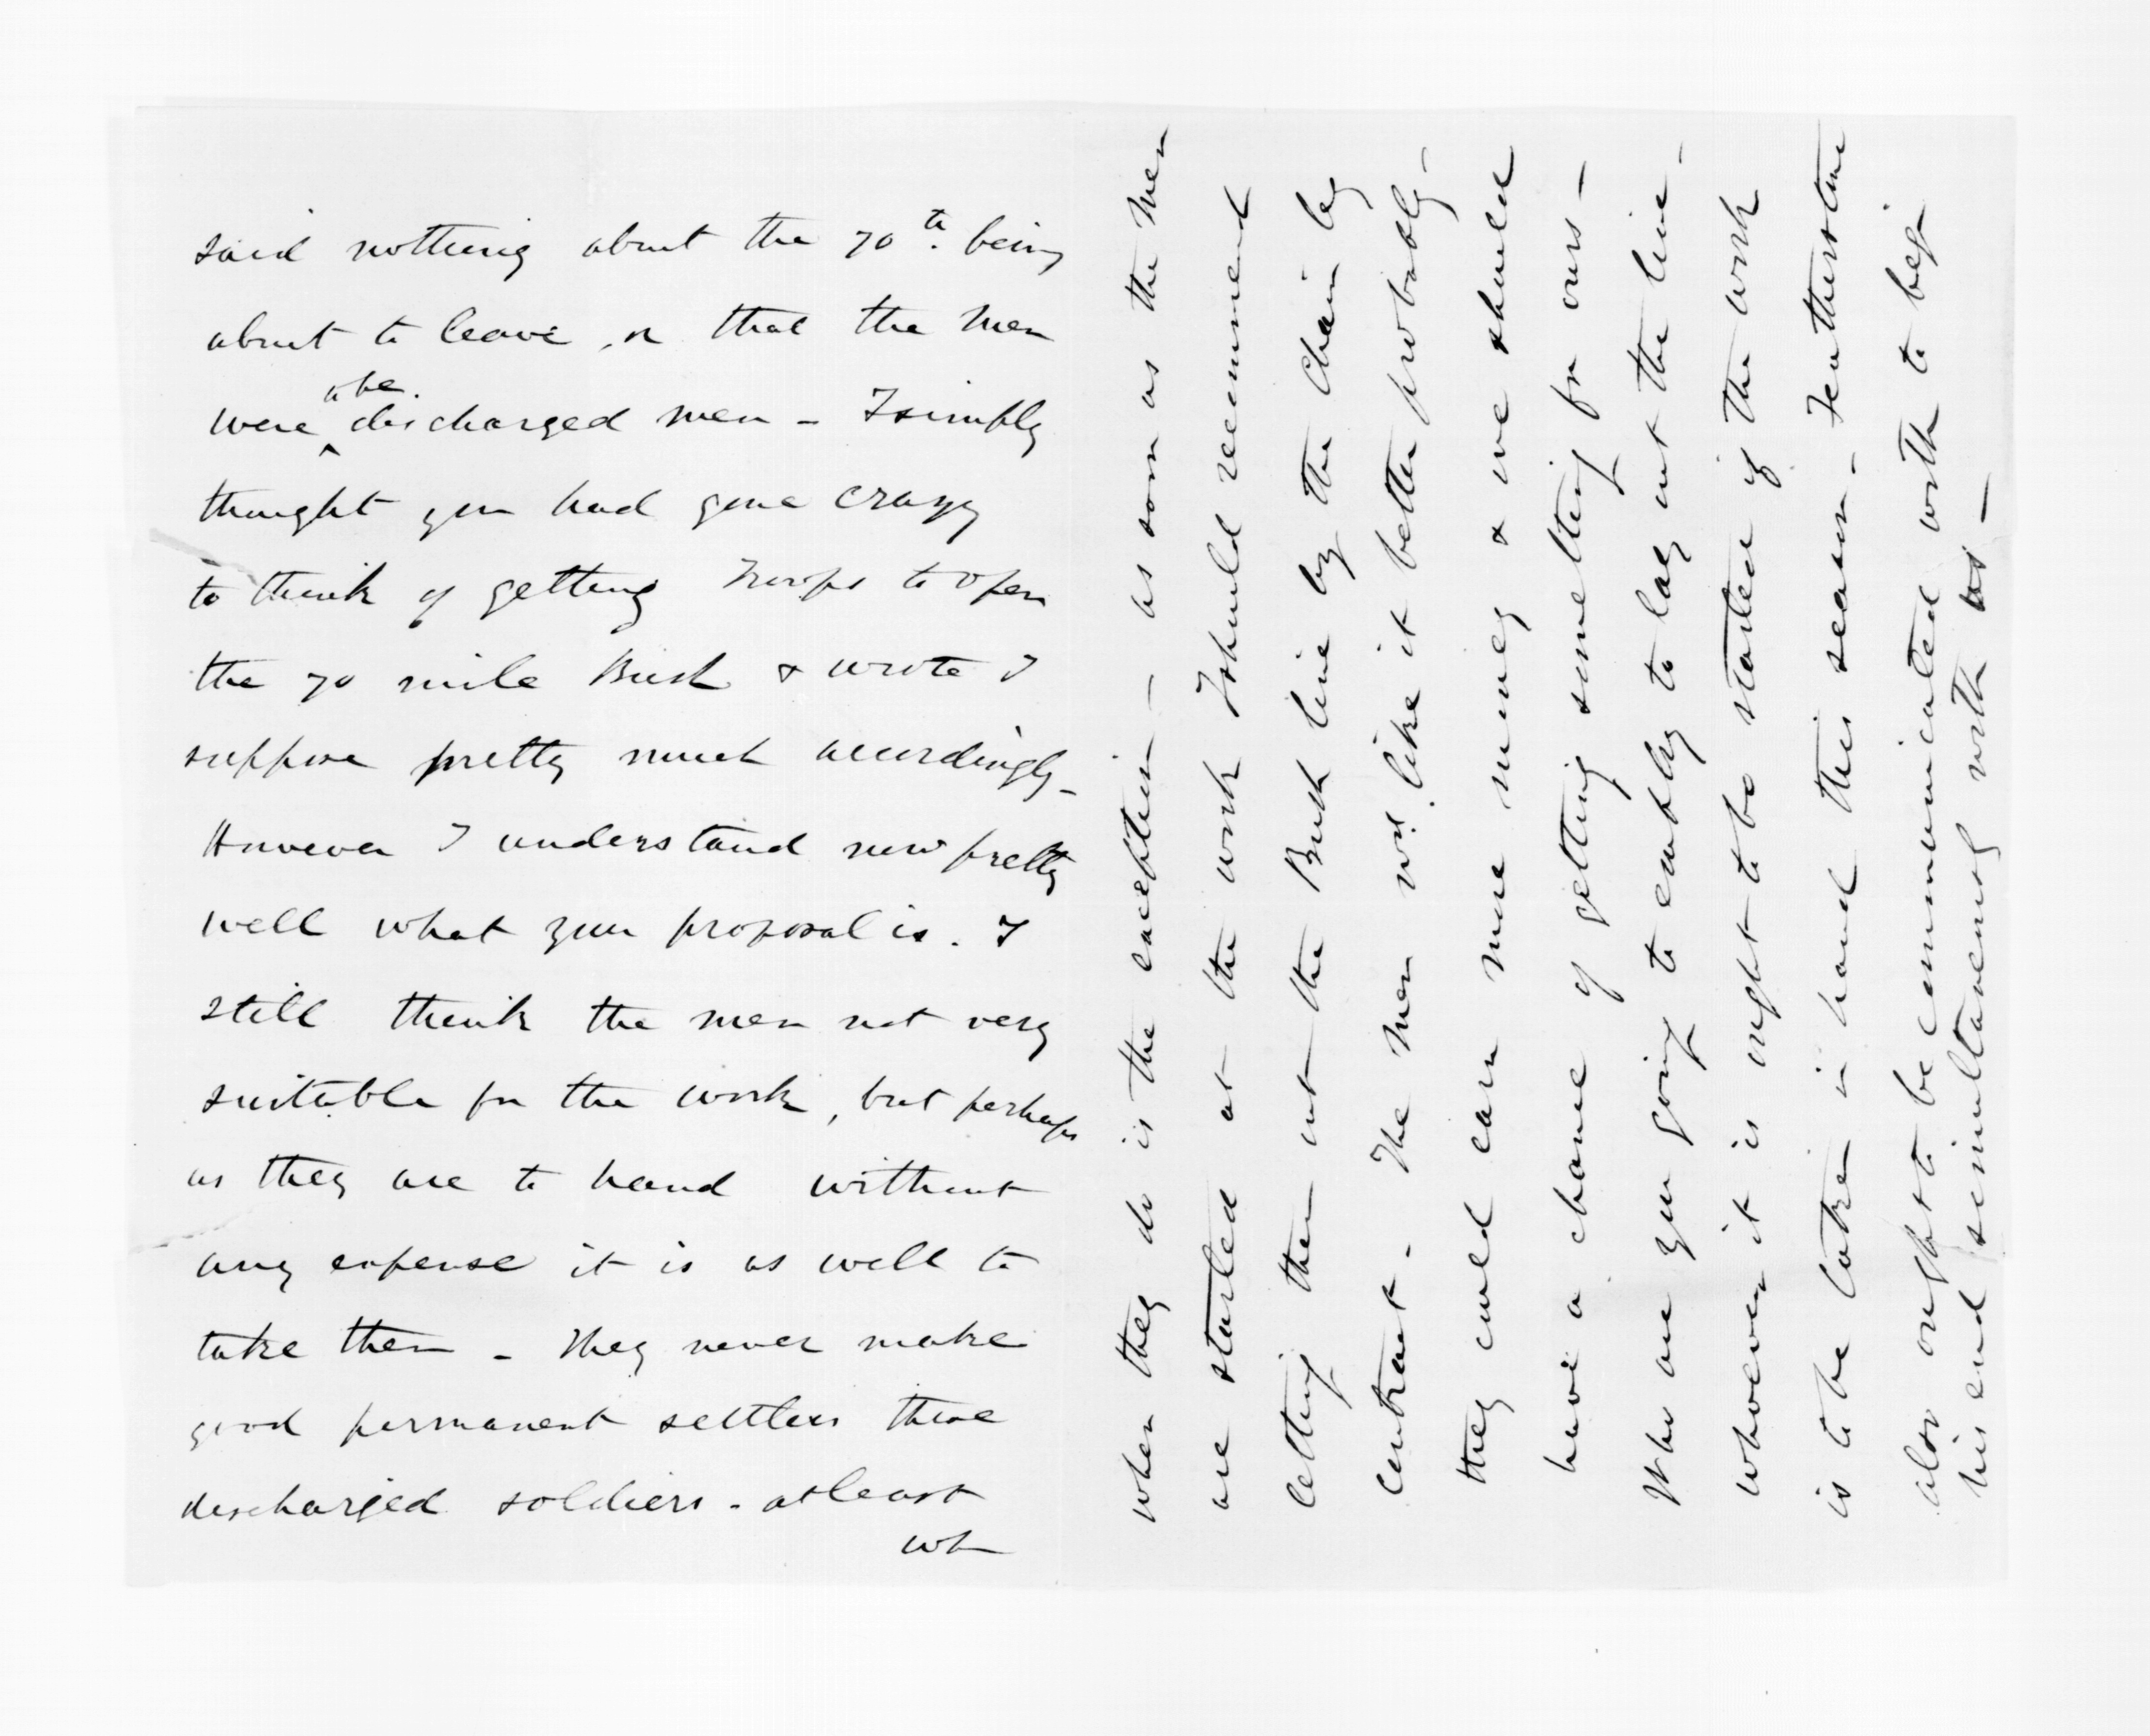 said nothing about the 70th being
about to leave, or that the men
were to be discharged men - I simply
thought you had gone crazy
to think of getting troops to open
the 70 mile Bush & wrote I
suppose pretty much accordingly -
However I understand now pretty
well what your proposal is. I
still think the men not very
suitable for the work, but perhaps
as they are to hand without
any expense it is as well to
take them - They never make
good permanent settlers these
discharged soldiers - at least
wh
when they do is the exception - as soon as the men
are started at the work I should recommend
letting them cut the Bush line by the chain by
contract - The men wd. like it better probably -
they could earn more money & we should
have a chance of getting something for ours -
Who are you going to employ to lay out the line -
whoever it is ought to be started if the work
is to be taken in hand this season - Featherston
also ought to be communicated with to begin
his end simultaneously with us -